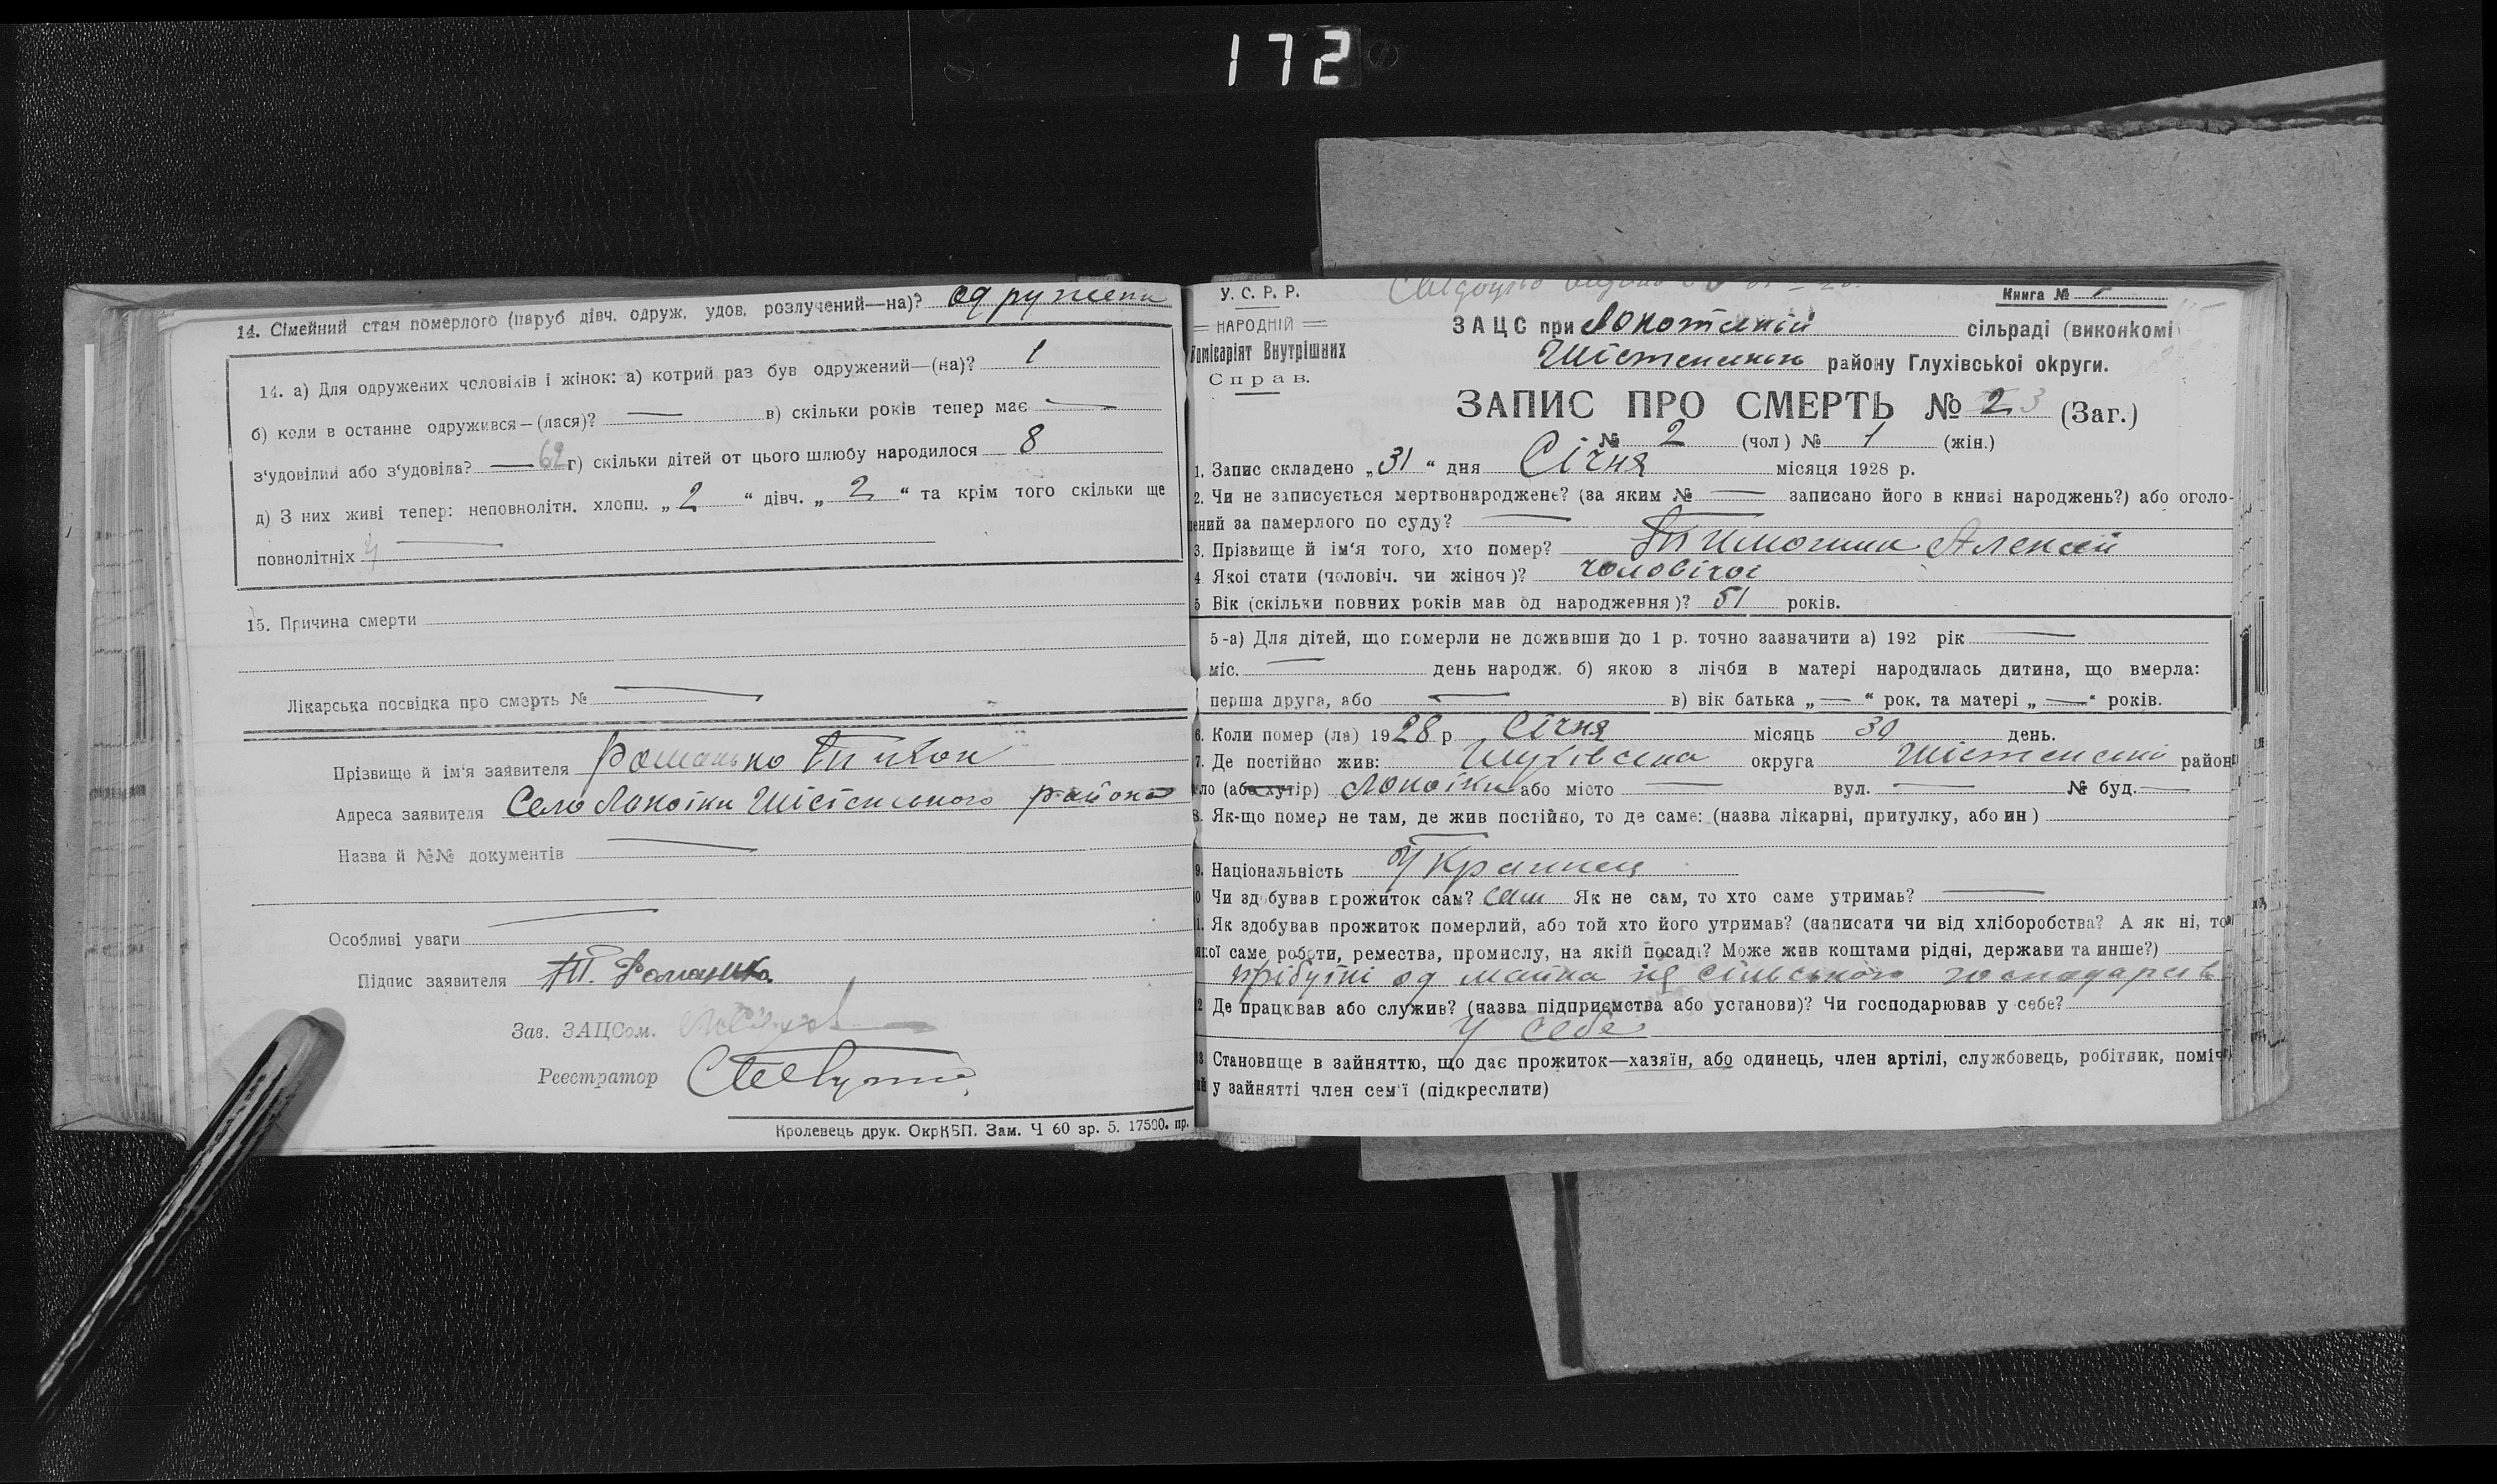 172
14. Сімейний стан померлого (паруб дівч. одруж. удов. розлучений—на)? одружени
14. а) Для одружених чоловіків і жінок: а) котрий раз був одружений—(на)? 1
б) коли в останне одружився—(лася)? — в) скільки років тепер має —
з'удовілий або з'удовіла? — 62 г) скільки дітей от цього шлюбу народилося 8
д) З них живі тепер: неповнолітн. хлопц. „ 2 “ дівч. „ 2 “ та крім того скільки ще
повнолітніх 4 —
15. Причина смерти
Лікарська посвідка про смерть № —
Прізвище й ім'я заявителя Романько Тихон
Адреса заявителя Село Локотки Шістенського района
Назва й №№ документів —
Особливі уваги —
Підпис заявителя Т. Романько.
Зав. ЗАЦСом.
Реєстратор
Кролевець друк. ОкрКВП. Зам. Ч 60 зр. 5. 17500. пр.
У. С. Р. Р.
НАРОДНІЙ
Комісаріят Внутрішних
Справ.
Книга № 1
ЗАЦС при Локотській сільраді (виконкомі
Шістенського району Глухівської округи.
ЗАПИС ПРО СМЕРТЬ № 2 3 (Заг.)
№ 2 (чол) № 1 (жін.)
1. Запис складено „31“ дня Січня місяця 1928 р.
2. Чи не записується мертвонароджене? (за яким № — записано його в книзі народжень?) або оголо-
ений за памерлого по суду? —
3. Прізвище й ім'я того, хто помер? Тимошин Алексей
4 Якої стати (чоловіч. чи жіноч)? чоловічої
5 Вік (скільки повних років мав од народження)? 51 років.
5-а) Для дітей, що померли не доживши до 1 р. точно зазначити а) 192 рік —
міс. — день народж. б) якою з лічби в матері народилась дитина, що вмерла:
перша друга, або — в) вік батька „—“ рок. та матері „—“ років.
6. Коли помер (ла) 1928 р Січня місяць 30 день.
7. Де постійно жив: Глухівська округа Шістенский район
ло (або хутір) Локотки або місто — вул. — № буд. —
8. Як-що помер не там, де жив постійно, то де саме: (назва лікарні, притулку, або ин)
9. Національність Украинец
0 Чи здобував прожиток сам? сам Як не сам, то хто саме утримав? —
1. Як здобував прожиток померлий, або той хто його утримав? (написати чи від хліборобства? А як ні, то
якої саме роботи, ремества, промислу, на якій посаді? Може жив коштами рідні, держави та инше?)
прібуткі од майна сільського господарств
2 Де працював або служив? (назва підприємства або установи)? Чи господарював у себе?
У себе
3 Становище в зайняттю, що дає прожиток—хазяїн, або одинець, член артілі, службовець, робітник, поміч
ий у зайнятті член сем'ї (підкреслити)